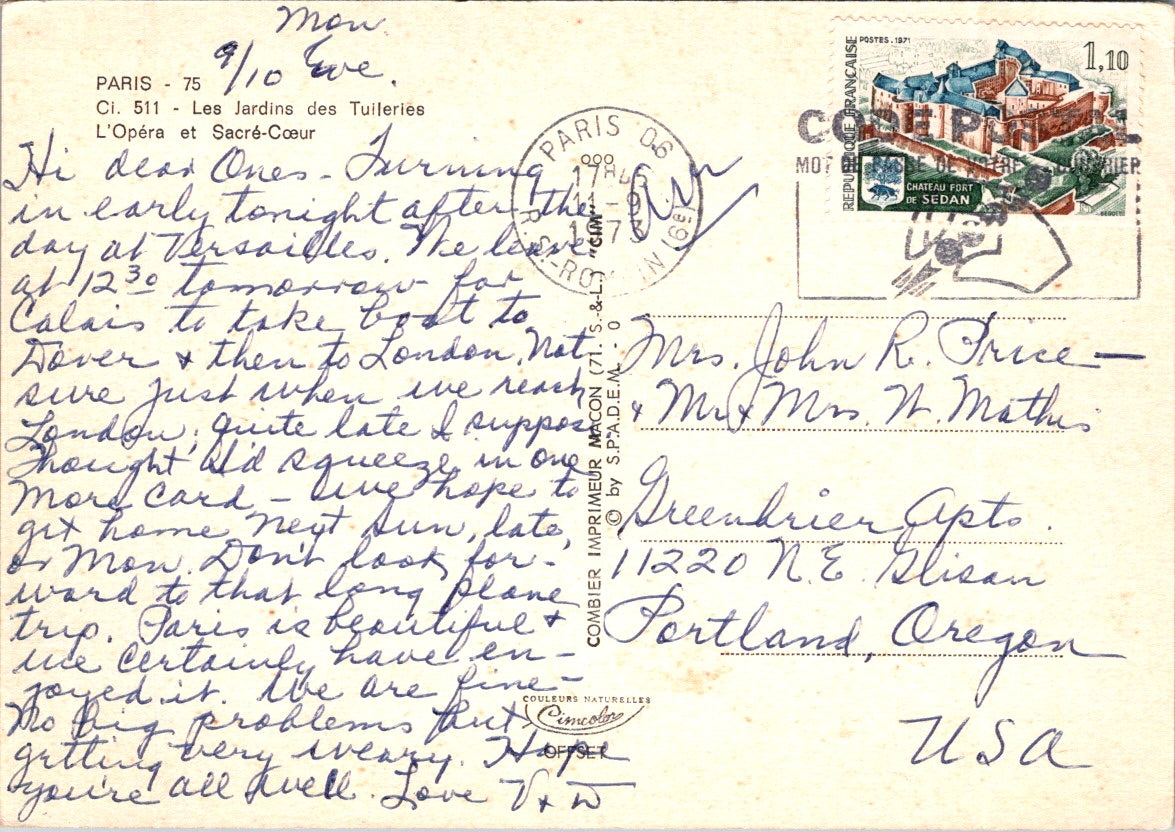 Mon.
9/10 Eve.
PARIS - 75
Ci. 511 - Les Jardins des Tuileries
L'Opéra et Sacré-Cœur
Hi dear Ones - Turning
in early tonight after the
day at Versailles. We leave
at 12 30 tomorrow for
Calais to take boat to
Dover & then to London. Not
sure just when we reach
London, quite late I suppose
Thought I'd squeeze in one
more card - We hope to
get home next Sun, late,
or Mon. Don't look for-
ward to that long plane
trip. Paris is beautiful &
we certainly have en-
joyed it. We are fine -
No big problems but
getting very weary. Hope
you're all well. Love V & W
PARIS 06
1973
REPUBLIQUE FRANCAISE
POSTES. 1971
1,10
CHATEAU FORT
DE SEDAN
CODE POSTAL
MOT DE PASSE DE VOTRE COURRIER
COMBIER IMPRIMEUR MACON (71. S.-&-L.) "CIM"
© by S.P.A.D.E.M. - 0
Mrs. John R. Price -
& Mr & Mrs. W. Mathis
Greenbrier Apts.
11220 N.E. Glisan
Portland, Oregon
USA
COULEURS NATURELLES
Cimcolor
OFFSET